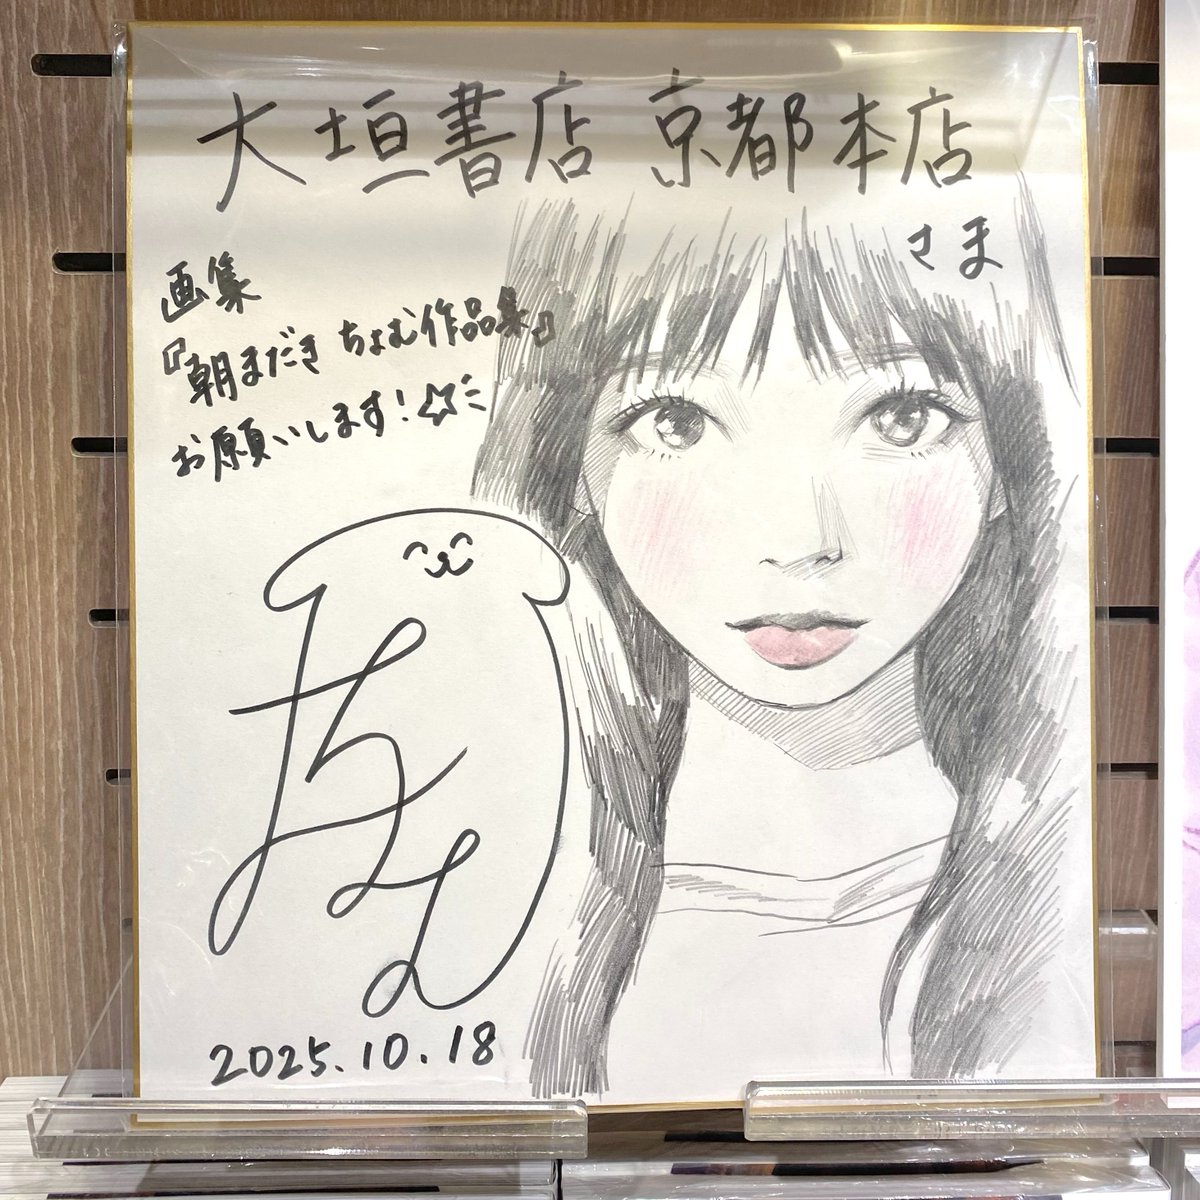 大垣書店 京都本店
さま
画集
『朝まだき ちょむ作品集』
お願いします！☆
2025.10.18